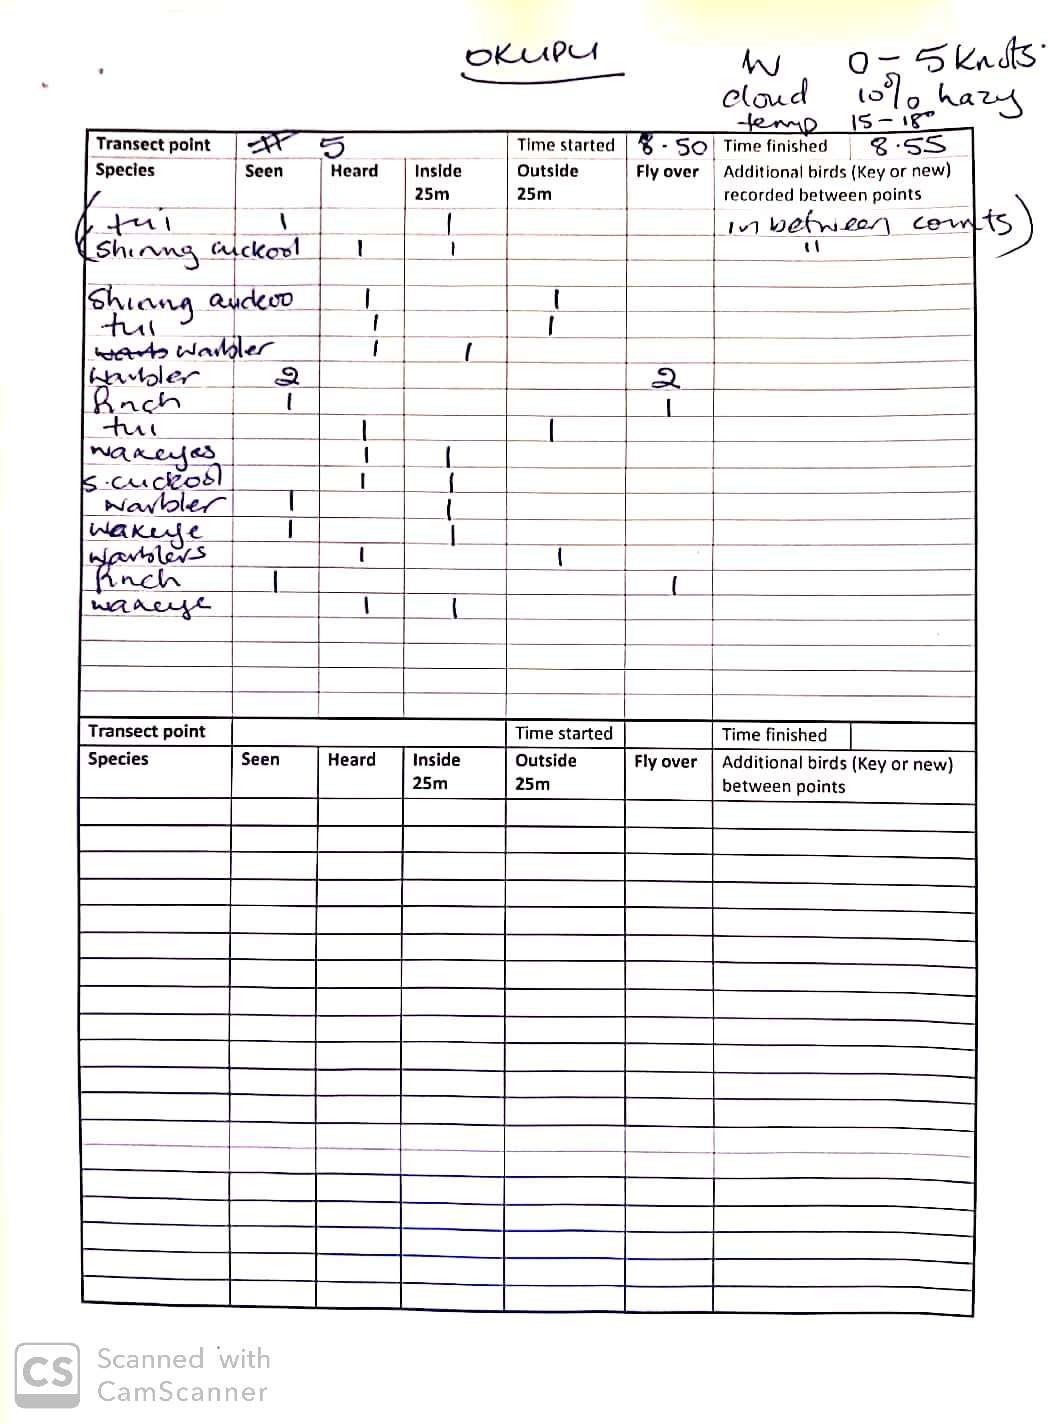 OKUPU
W 0-5 Knots.
cloud 10% hazy
temp 15-18°
Transect point # 5 Time started 8.50 Time finished 8.55
Species Seen Heard Inside 25m Outside 25m Fly over Additional birds (Key or new) recorded between points
(tui 1 1 in between counts)
(Shining cuckool 1 1 "
Shining cuckoo 1 1
tui 1 1
warbler 1 1
Warbler 2 2
finch 1 1
tui 1 1
waxeyes 1 1
S.cuckool 1 1
Warbler 1 1
waxeye 1 1
Warblers 1 1
finch 1 1
waxeye 1 1
Transect point Time started Time finished
Species Seen Heard Inside 25m Outside 25m Fly over Additional birds (Key or new) between points
CS Scanned with
CamScanner